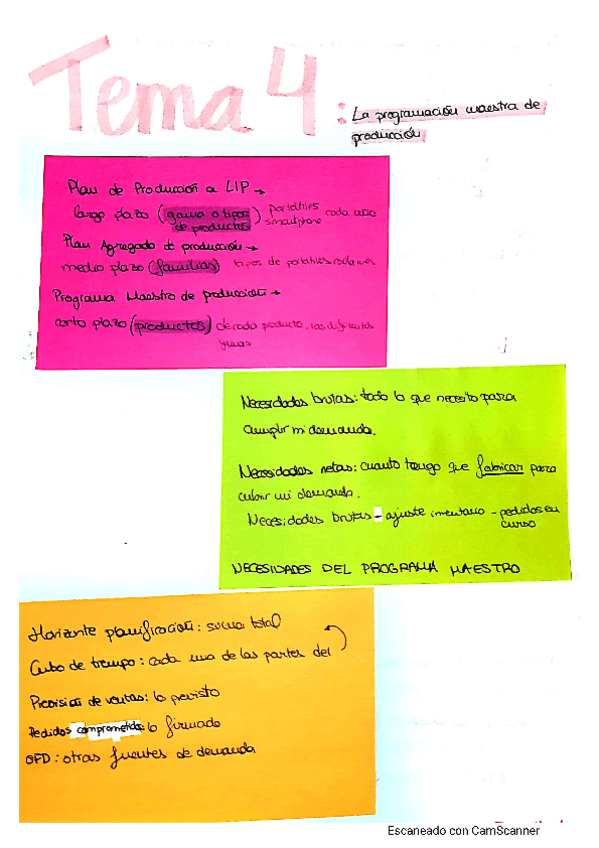 Tema 4:
La programación maestra de
producción
Plan de Producción a L|P →
largo plazo (gama o tipos
de productos)
portátiles
smartphone
cada uno
Plan Agregado de producción →
medio plazo (familias) tipos de portátiles
Programa Maestro de producción →
corto plazo (productos) de cada producto, las diferentes
Necesidades brutas: todo lo que necesito para
cumplir mi demanda.
Necesidades netas: cuanto tengo que fabricar para
cubrir mi demanda.
Necesidades brutas - ajuste inventario - pedidos en
curso
NECESIDADES DEL PROGRAMA MAESTRO
Horizonte planificación: suma total
Cubo de tiempo: cada una de las partes del
Prevision de ventas: lo previsto
Pedidos comprometidos: lo firmado
OFD: otras fuentes de demanda
Escaneado con CamScanner